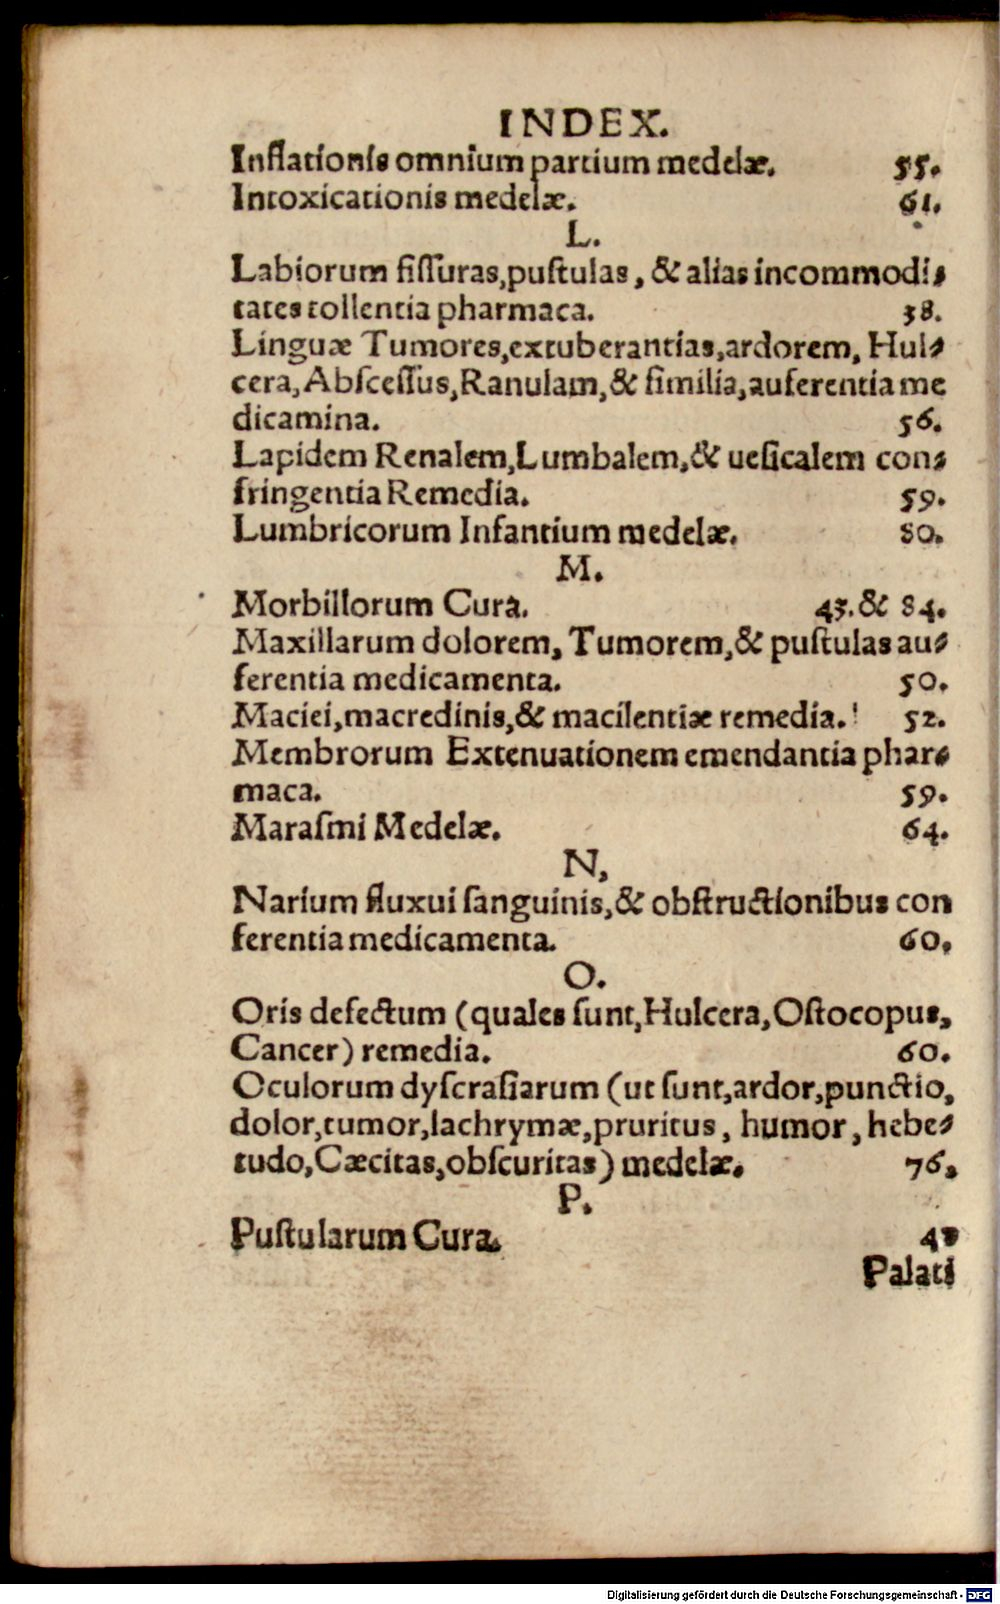 INDEX.
Inflationis omnium partium medelæ. 55.
Intoxicationis medelæ. 61.
L.
Labiorum fiſſuras, puſtulas, & alias incommodi-
tates tollentia pharmaca. 38.
Linguæ Tumores, extuberantias, ardorem, Hul-
cera, Abſceſſus, Ranulam, & ſimilia, auferentia me
dicamina. 56.
Lapidem Renalem, Lumbalem, & ueſicalem con-
fringentia Remedia. 59.
Lumbricorum Infantium medelæ. 80.
M.
Morbillorum Cura. 43. & 84.
Maxillarum dolorem, Tumorem, & puſtulas au-
ferentia medicamenta. 50.
Maciei, macredinis, & macilentiæ remedia. 52.
Membrorum Extenuationem emendantia phar-
maca. 59.
Maraſmi Medelæ. 64.
N,
Narium fluxui ſanguinis, & obſtructionibus con
ferentia medicamenta. 60.
O.
Oris defectum (quales ſunt, Hulcera, Oſtocopus,
Cancer) remedia. 60.
Oculorum dyſcraſiarum (ut ſunt, ardor, punctio,
dolor, tumor, lachrymæ, pruritus, humor, hebe-
tudo, Cæcitas, obſcuritas) medelæ. 76.
P.
Puſtularum Cura.
Palati
Digitalisierung gefördert durch die Deutsche Forschungsgemeinschaft - DFG